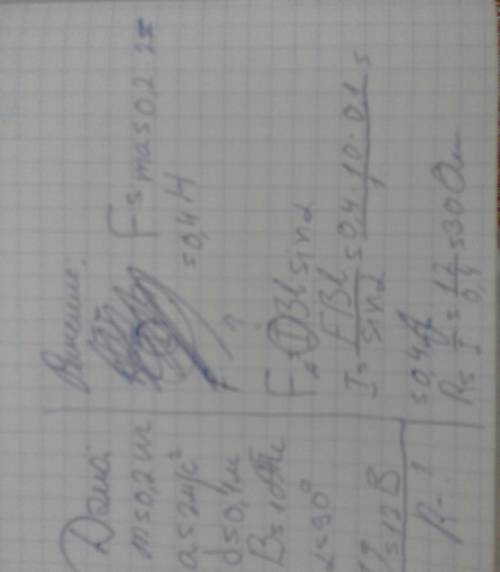 Дано:
m = 0,2 кг
a = 2 м/с²
d = 0,1 м
B = 10 Тл
α = 90°
= 12 В
R - ?
Решение:
F = ma = 0,2
= 0,4 Н
F = IBl sin α
I = FBl / sin α = 0,4 · 10 · 0,1 / 1 =
= 0,4 A
R = / I = 12 / 0,4 = 30 Ом